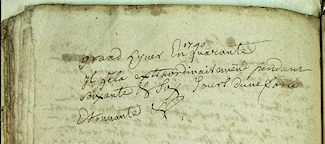 1740
grand hyver En quarante
Il gela extraordinairement pendant
soixante & six Jours d'une force
Etonnante